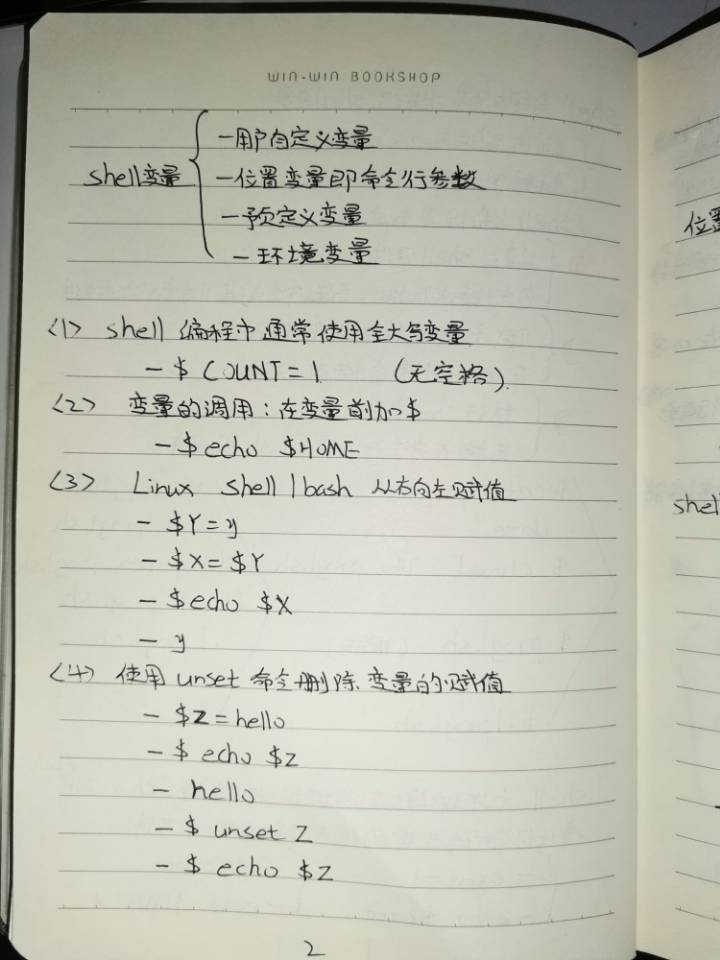 WIN-WIN BOOKSHOP
shell变量
-用户自定义变量
-位置变量即命令行参数
-予页定义变量
-环境变量
<1> shell 编程中通常使用全大写变量
- $ COUNT=1 (无空格).
<2> 变量的调用:在变量前加$
- $ echo $HOME
<3> Linux shell / bash 从右向左赋值
- $Y=y
- $X=$Y
- $echo $X
- y
<4> 使用 unset 命令删除变量的赋值
- $Z=hello
- $ echo $Z
- hello
- $ unset Z
- $ echo $Z
2
位置
shel